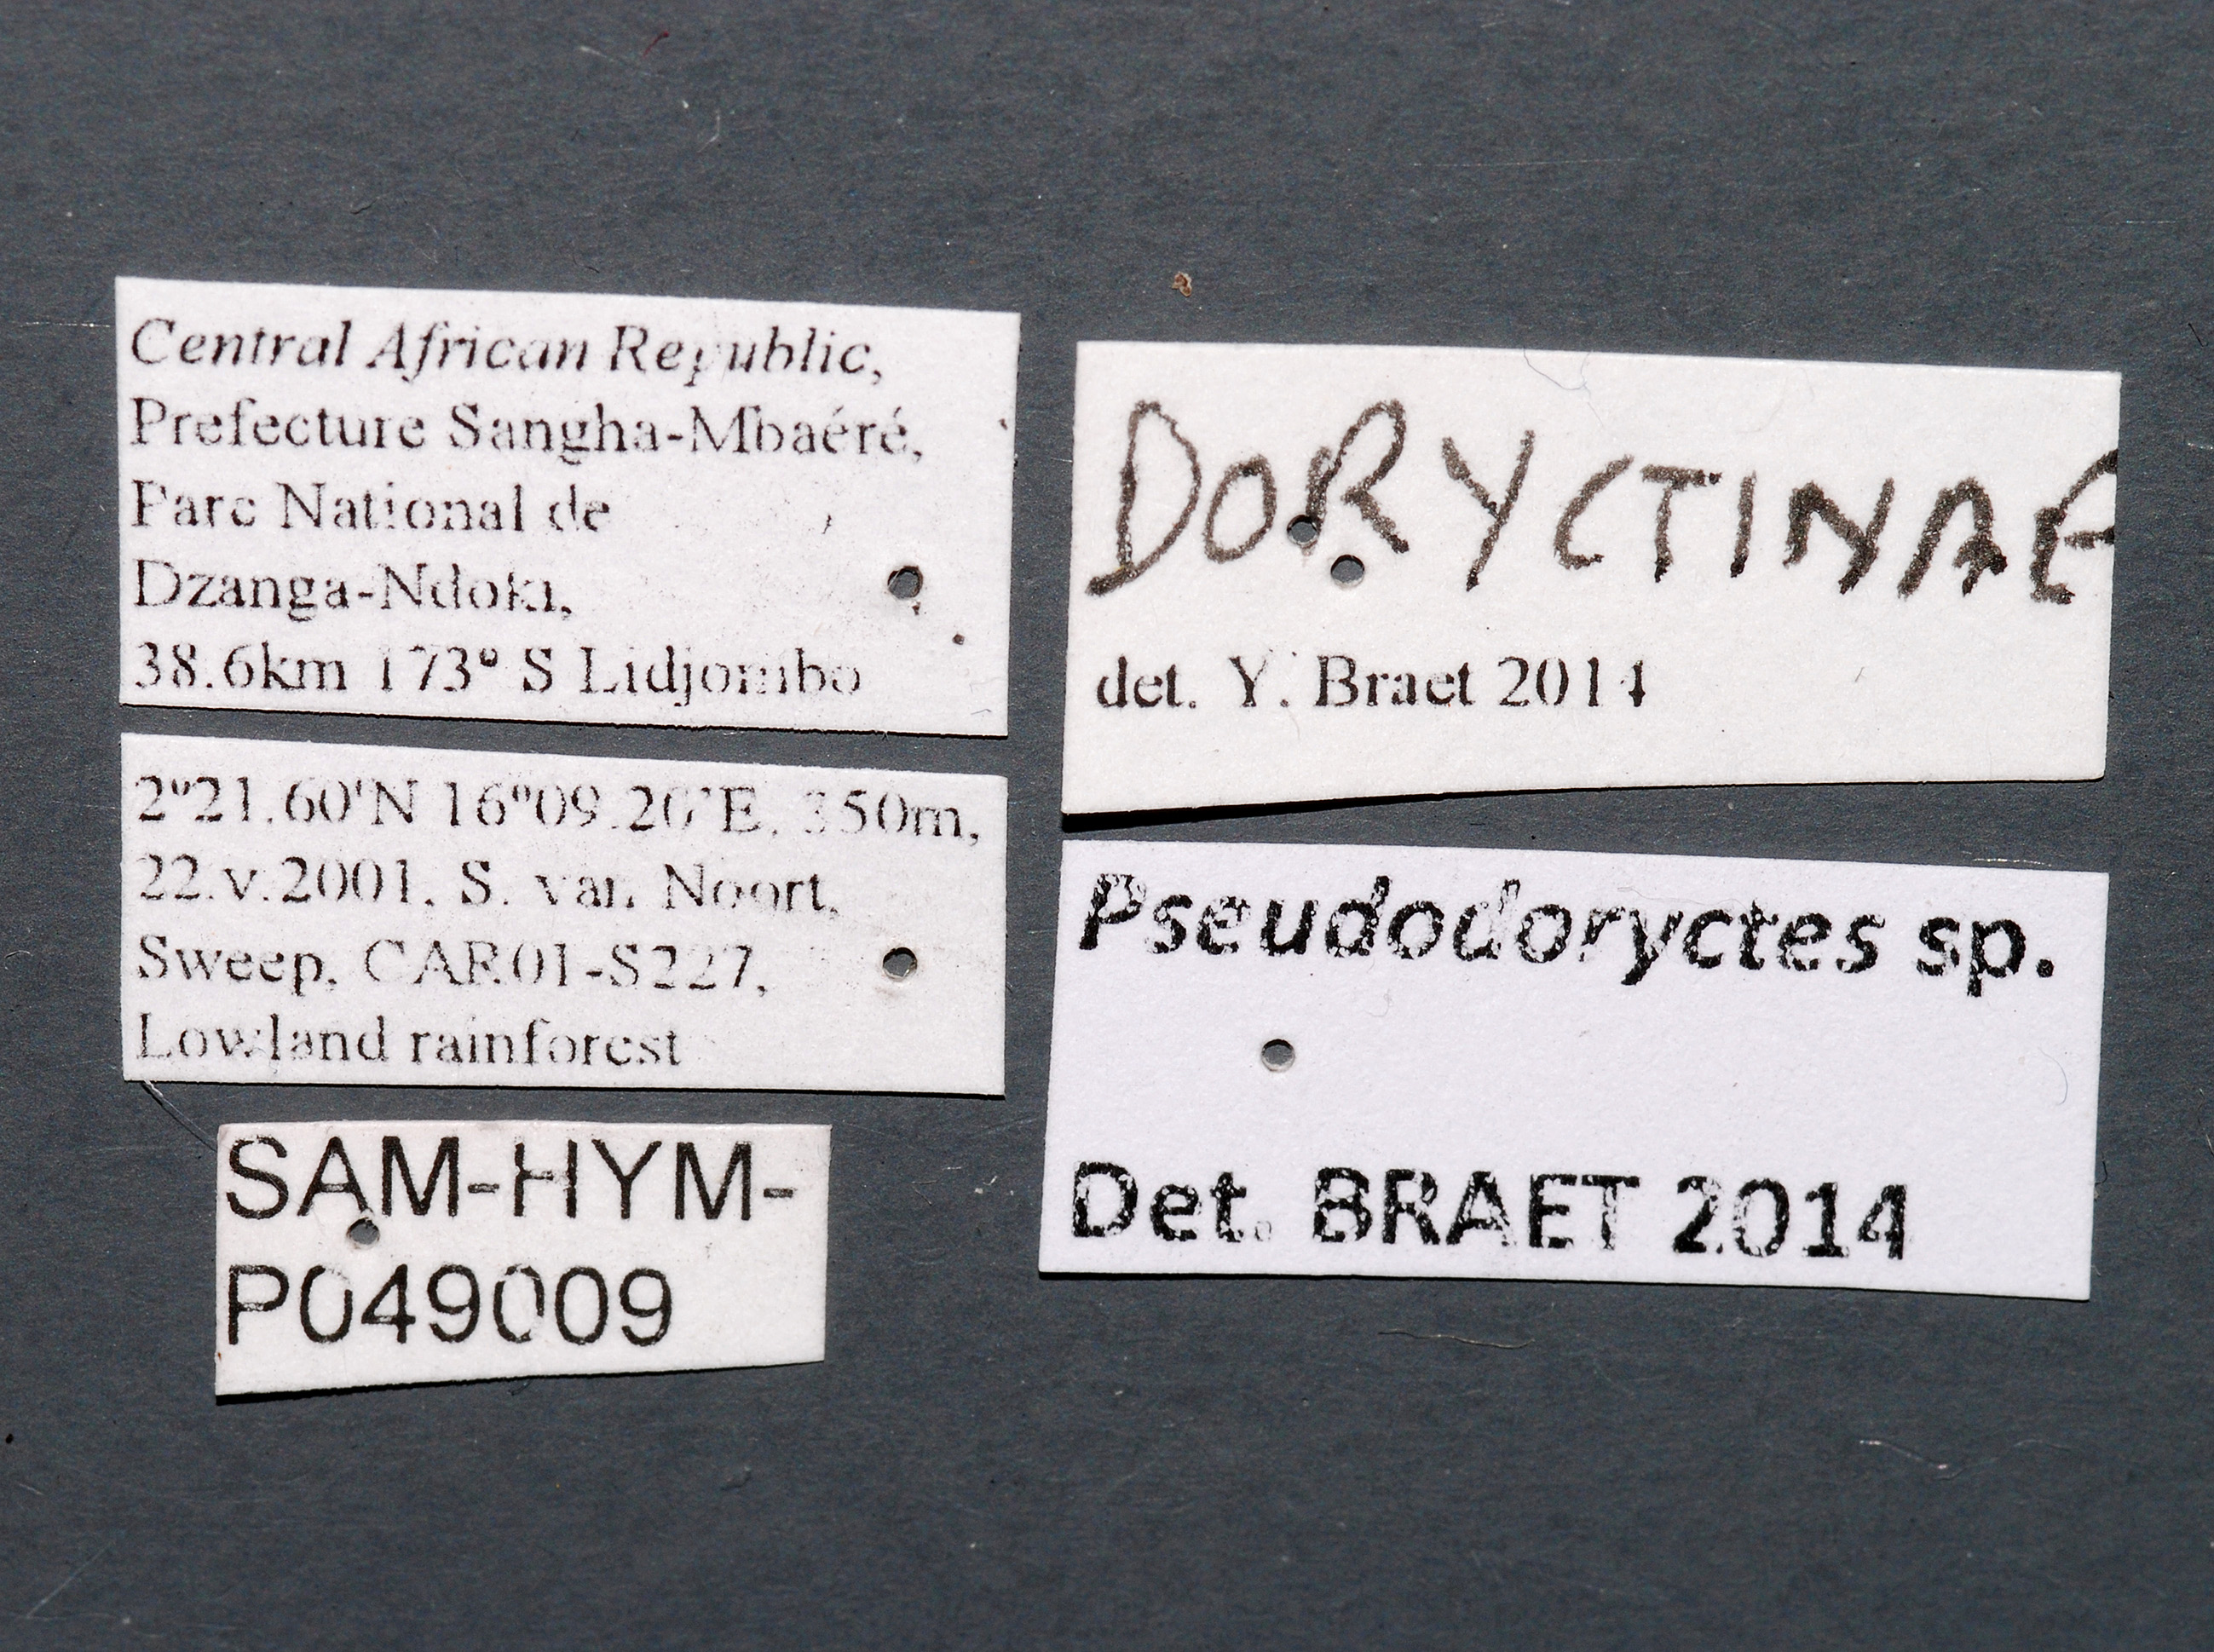 Central African Republic,
Prefecture Sangha-Mbaéré,
Parc National de
Dzanga-Ndoki,
38.6km 173° S Lidjombo
2°21.60'N 16°09.20'E, 350m,
22.v.2001, S. van Noort,
Sweep, CAR01-S227,
Lowland rainforest
SAM-HYM-
P049009
DORYCTINAE
det. Y. Braet 2014
Pseudodoryctes sp.
Det. BRAET 2014